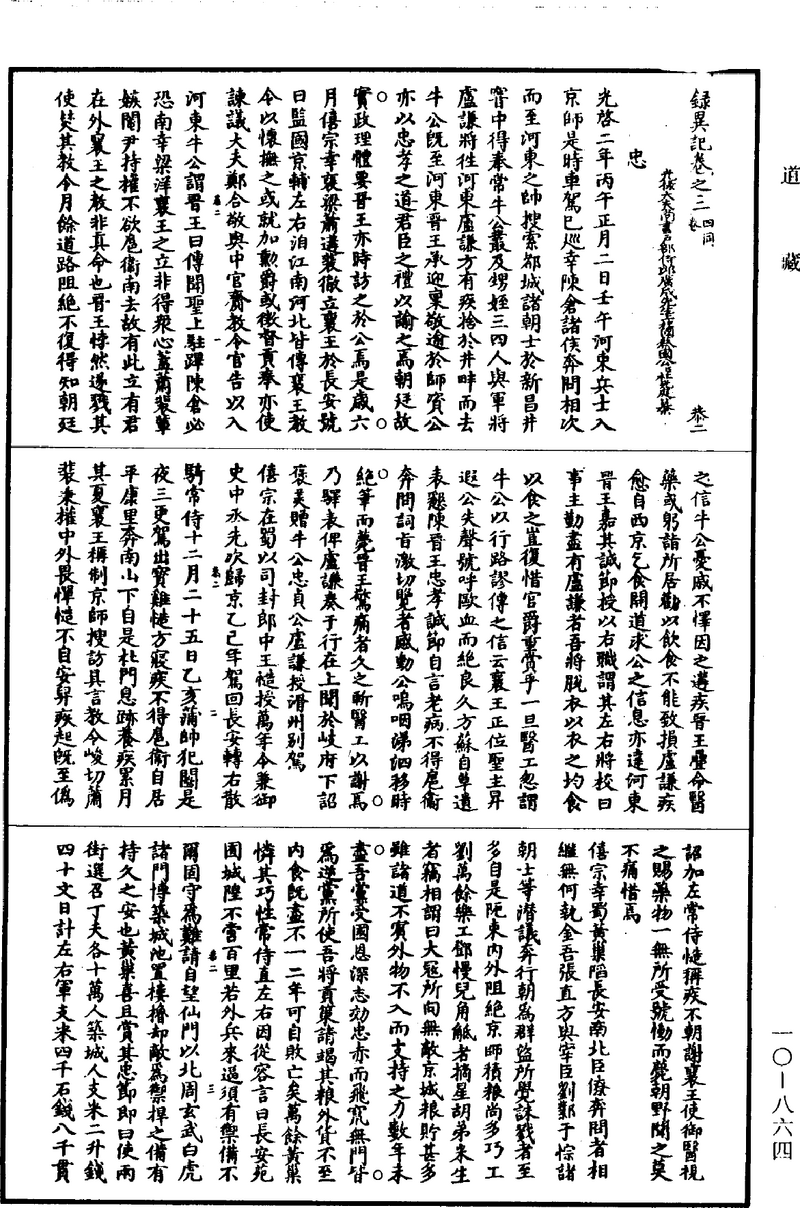 道藏
錄異記卷之三 四同卷 卷二
光祿大夫尚書戶部侍郎廣成先生上柱國蔡國公杜光庭纂
忠
光啓二年丙午正月二日壬午河東兵士入
京師是時車駕已巡幸陳倉諸侯奔問相次
而至河東之師搜索都城諸朝士於新昌井
窨中得奉常牛公叢及甥姪三四人與軍將
盧謙將往河東盧謙方有疾捨於井畔而去
牛公既至河東晉王承迎禀敬逾於師賓公
亦以忠孝之道君臣之禮以諭之焉朝廷故
實政理體要晉王亦時訪之於公焉是歲六
月僖宗幸襃梁蕭遘裴徹立襄王於長安號
日監國京輔左右洎江南河北皆傳襄王教
令以懷撫之或就加勳爵或徵督貢奉亦使
諫議大夫鄭合敬與中官齎教令官告以入
河東牛公謂晉王曰傳聞聖上駐蹕陳倉必
恐南幸梁洋襄王之立非得衆心蓋蕭裴輩
嫉閹尹持權不欲扈衞南去故有此立有君
在外襄王之教非真命也晉王悖然遂戮其
使焚其教令月餘道路阻絕不復得知朝廷
之信牛公憂戚不懌因之遘疾晉王壘命醫
藥或躬詣所居勸以飲食不能致損盧謙疾
愈自西京乞食間道求公之信息亦達河東
晉王嘉其誠節授以右職謂其左右將校曰
事主勤盡有盧謙者吾將脫衣以衣之均食
以食之豈復惜官爵重賞乎一旦醫工忽謂
牛公以行路謬傳之信云襄王正位聖主昇
遐公失聲號呼歐血而絕良久方蘇自草遺
表懇陳晉王忠孝誠節自言老病不得扈衞
奔問詞旨激切覽者感動公嗚咽涕泗移時
絕筆而薨晉王驚痛者久之斬醫工以謝焉
乃驛表俾盧謙奏于行在上聞於岐府下詔
襃美贈牛公忠貞公盧謙授滑州別駕
僖宗在蜀以司封郎中王慥授萬年令兼御
史中丞先次歸京乙巳年駕回長安轉右散
騎常侍十二月二十五日乙亥蒲帥犯闕是
夜三更駕出寶雞慥方寢疾不得扈衞自居
平康里奔南山下自是杜門息跡養疾累月
其夏襄王稱制京師搜訪具言教令峻切蕭
裴秉權中外畏憚慥不自安舁疾起既至僞
詔加左常侍慥稱疾不朝謝襄王使御醫視
之賜藥物一無所受號慟而薨朝野聞之莫
不痛惜焉
僖宗幸蜀黃巢陷長安南北臣僚奔問者相
繼無何執金吾張直方與宰臣劉鄴于悰諸
朝士等潛議奔行朝爲群盜所覺誅戮者至
多自是阨東內外阻絕京師積粮尚多巧工
劉萬餘樂工鄧慢兒角觝者摘星胡弟米生
者竊相謂曰大寇所向無敵京城粮貯甚多
雖諸道不賓外物不入而支持之力數年未
盡吾黨受國恩深志効忠亦而飛竄無門皆
爲逆黨所使吾將貢策請竭其粮外貨不至
內食既盡不一二年可自敗亡矣萬餘黃巢
憐其巧性常侍直左右因從容言曰長安苑
囿城隍不啻百里若外兵來過須有禦備不
爾固守爲難請自望仙門以北周玄武白虎
諸門博築城池置樓櫓却敵爲禦捍之備有
持久之安也黃巢喜且賞其忠節即日使兩
街選召丁夫各十萬人築城人支米二升錢
四十文日計左右軍支米四千石錢八千貫
卷二 一
卷二 二
卷二 三
一〇—八六四